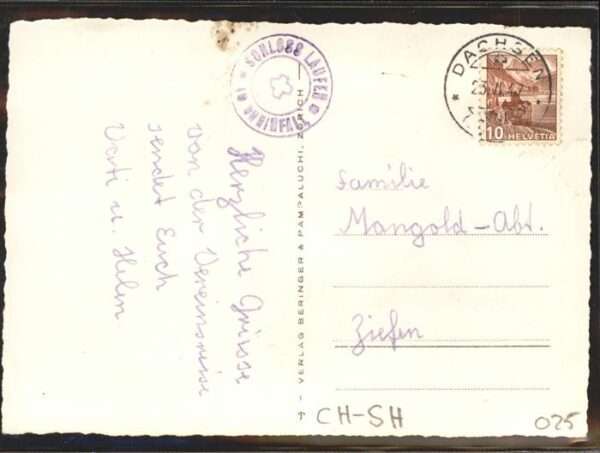 SCHLOSS LAUFEN
AM RHEINFALL
Herzliche Grüsse
von der Vereinsreise
sendet Euch
Vati u. Helen
— VERLAG BERINGER & PAMPALUCHI, ZÜRICH —
DACHSEN
10 HELVETIA
Familie
Mangold-Abt.
Ziefen
CH-SH
025